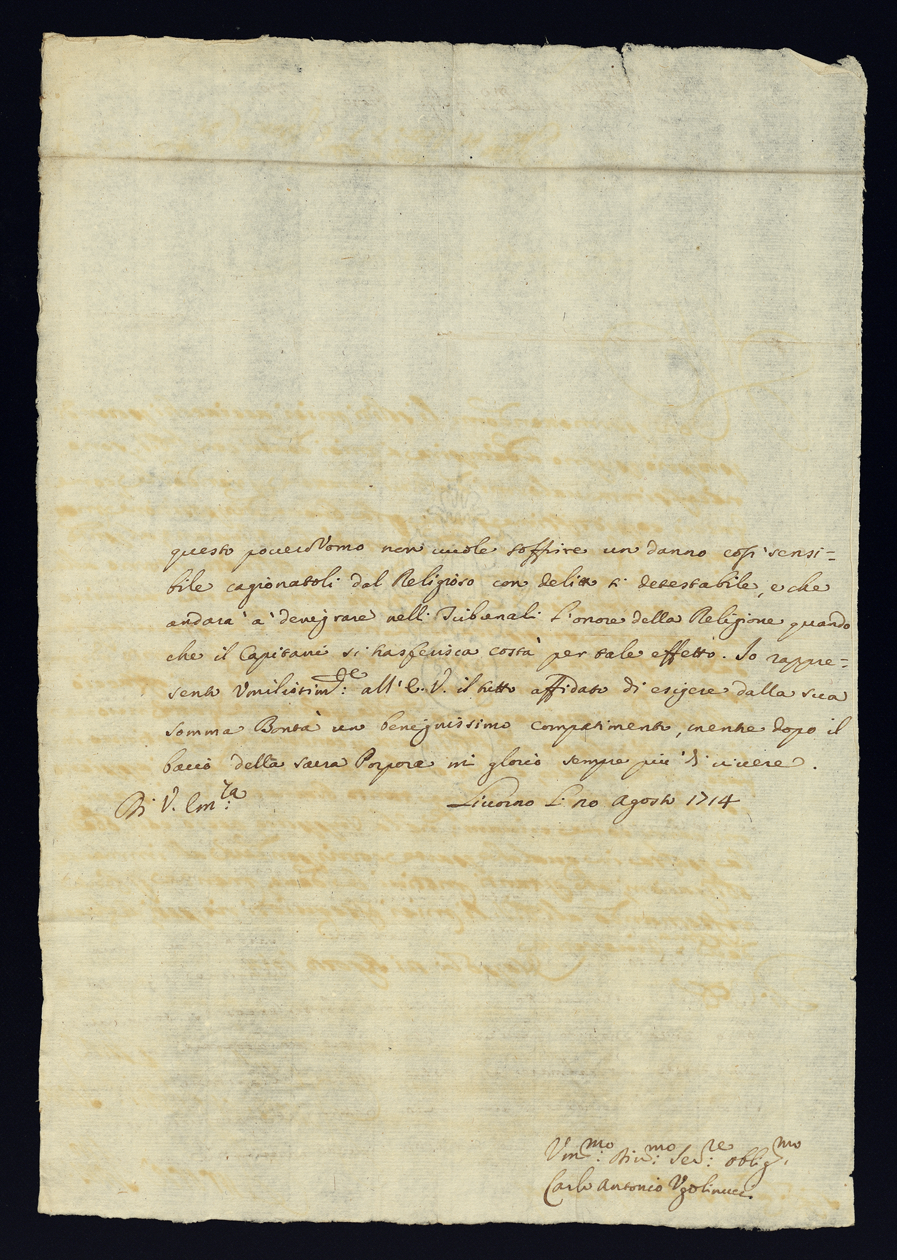 questo pover'Vomo non vuole soffrire un danno così sensi=
bile cagionatoli dal Religioso con delitto sì detestabile, e che
andarà à denigrare nelli Tribunali l'onore della Religione quando
che il Capitani si trasferisca costà per tale effetto. Io rappre=
sento Vmilissim.de: all'E. V. il tutto affidato di esigere dalla sua
somma Bontà un benignissimo compatimento, mentre dopo il
bacio della sacra Porpora mi glorio sempre più di vivere.
Di V. Em.za
Livorno li 20 Agosto 1714
Vm.mo: Div.mo: Ser.re: oblig.mo
Carlo Antonio Vgolinucci